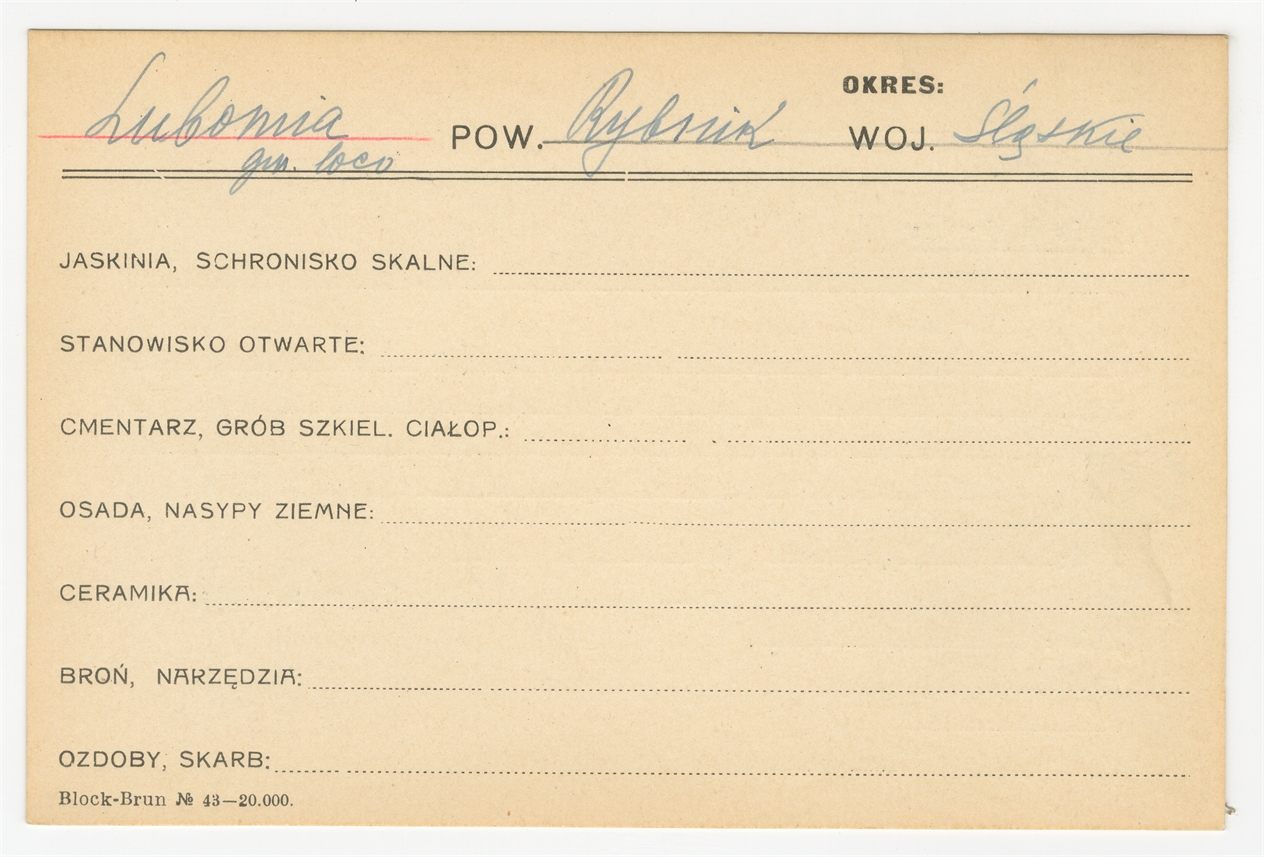 OKRES:
Lubomia POW. Rybnik WOJ. Śląskie
gm. loco
JASKINIA, SCHRONISKO SKALNE:
STANOWISKO OTWARTE:
CMENTARZ, GRÓB SZKIEL. CIAŁOP.:
OSADA, NASYPY ZIEMNE:
CERAMIKA:
BROŃ, NARZĘDZIA:
OZDOBY, SKARB:
Block-Brun № 43—20.000.